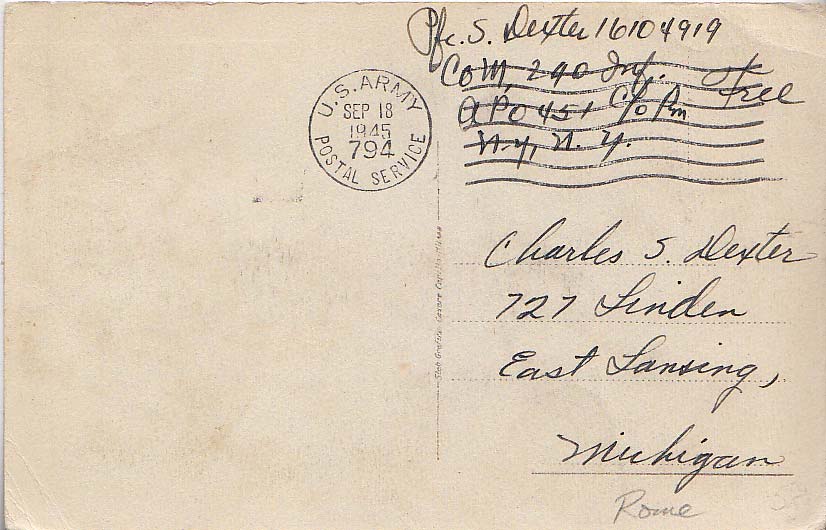 Pfc. S. Dexter 16104919
Co M, 290 Inf. Free
APO 451 C/o Pm
N.Y., N.Y.
U.S. ARMY
SEP 18
1945
794
POSTAL SERVICE
Charles S. Dexter
727 Linden
East Lansing,
Michigan
Rome